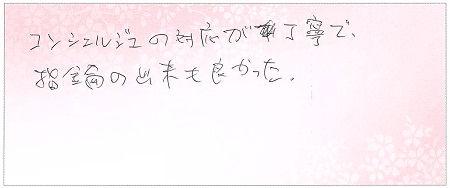 コンシェルジュの対応が丁寧で、
指輪の出来も良かった。